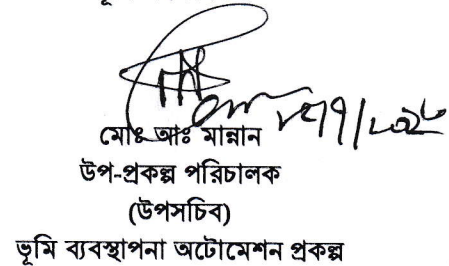 মোঃ আঃ মান্নান
উপ-প্রকল্প পরিচালক
(উপসচিব)
ভূমি ব্যবস্থাপনা অটোমেশন প্রকল্প